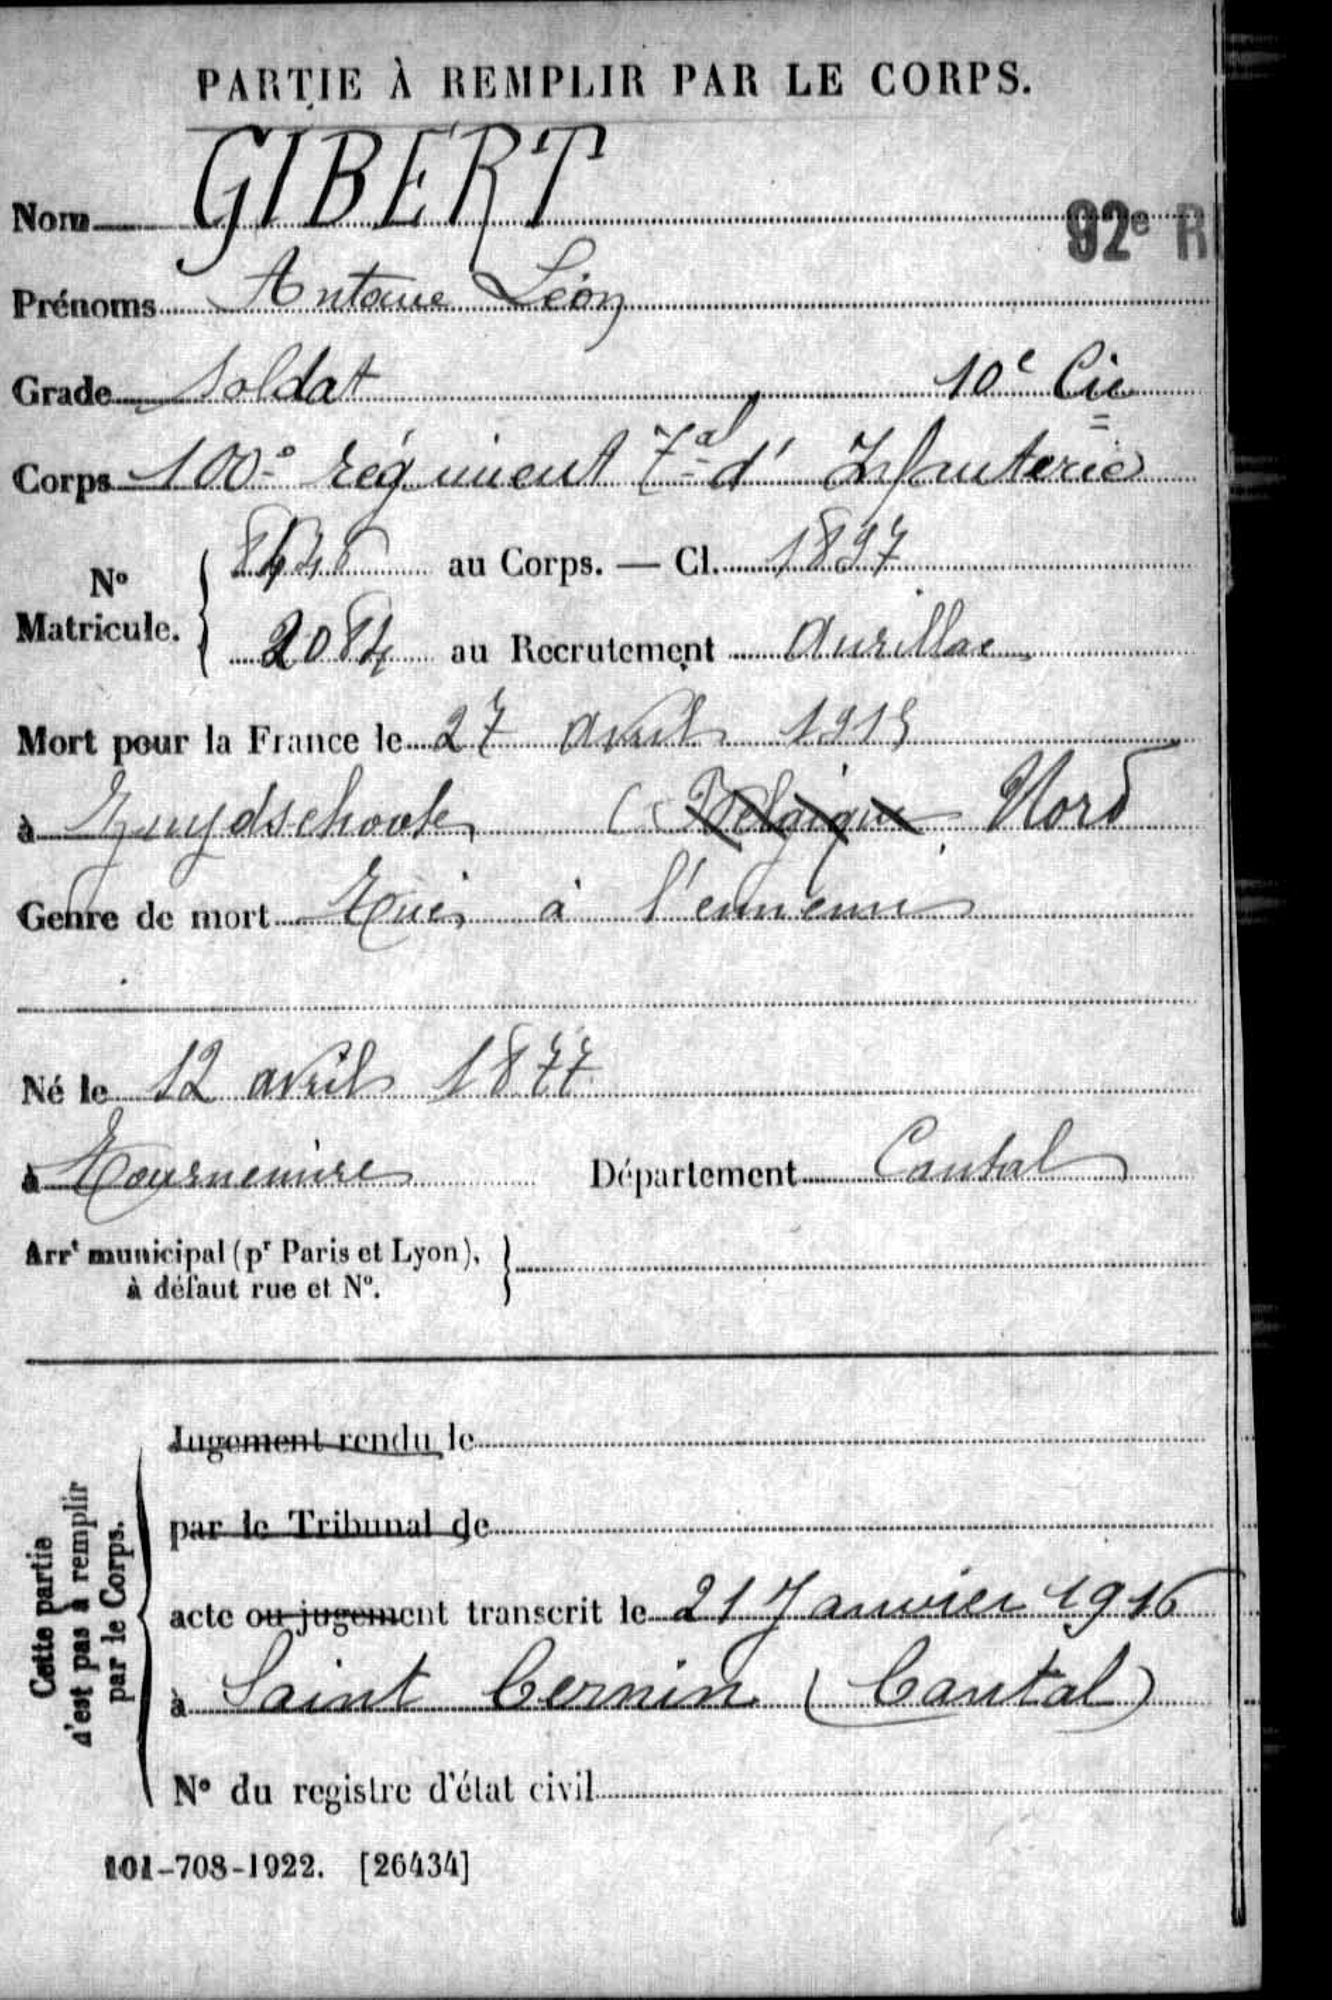 PARTIE À REMPLIR PAR LE CORPS.
Nom GIBERT
92e R
Prénoms Antoine Léon
Grade Soldat 10e Cie
Corps 100e régiment Tal d'Infanterie
No Matricule. { au Corps. — Cl. 1897
2084 au Recrutement Aurillac
Mort pour la France le 27 avril 1915
à Zuydschoote (Belgique Nord
Genre de mort Tué à l'ennemi
Né le 12 avril 1877
à Tournemire Département Cantal
Arrt municipal (pr Paris et Lyon), }
à défaut rue et No.
Cette partie
n'est pas à remplir
par le Corps.
Jugement rendu le
par le Tribunal de
acte ou jugement transcrit le 21 Janvier 1916
à Saint Cernin (Cantal)
No du registre d'état civil
101-708-1922. [26434]